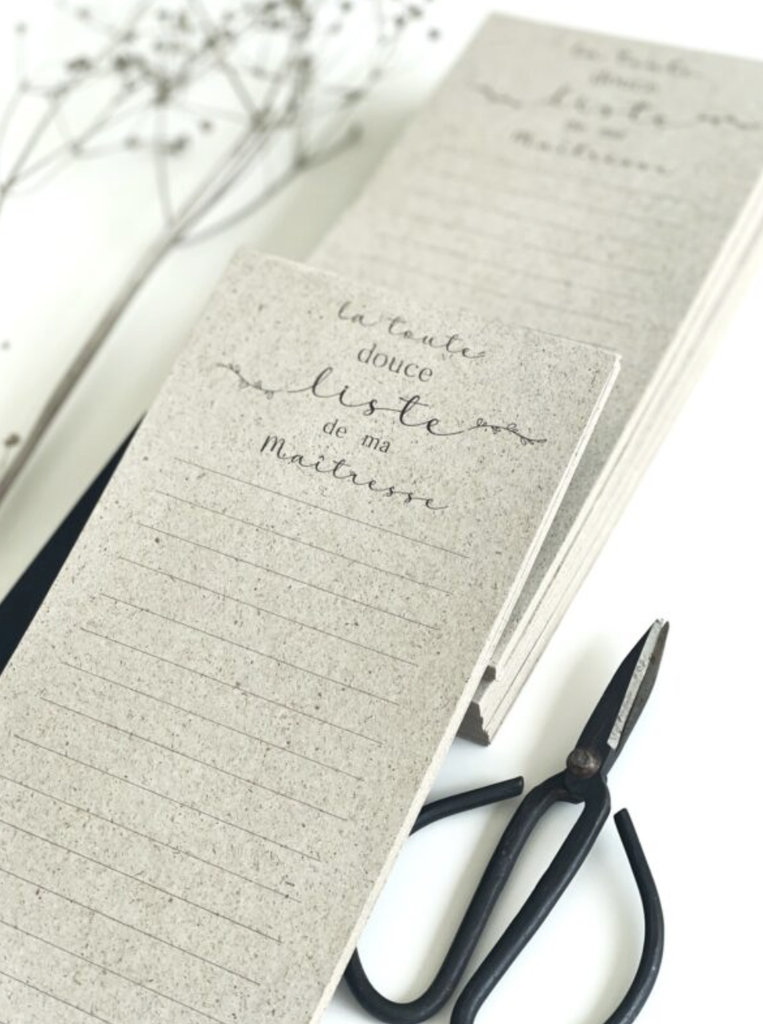 la toute
douce
liste
de ma
Maîtresse
la toute
douce
liste
de ma
Maîtresse